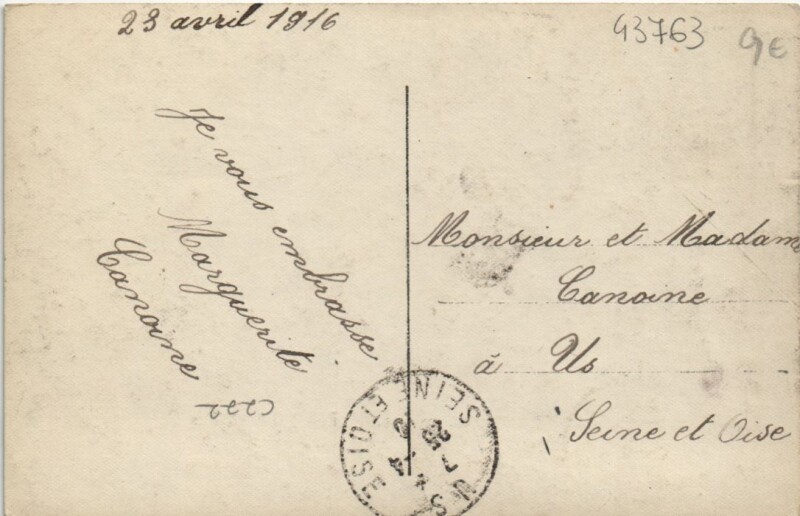 23 avril 1916
43763
9€
Je vous embrasse
Marguerite
Canoine
Monsieur et Madam
Canoine
à Us
Seine et Oise
US
SEINE ET OISE